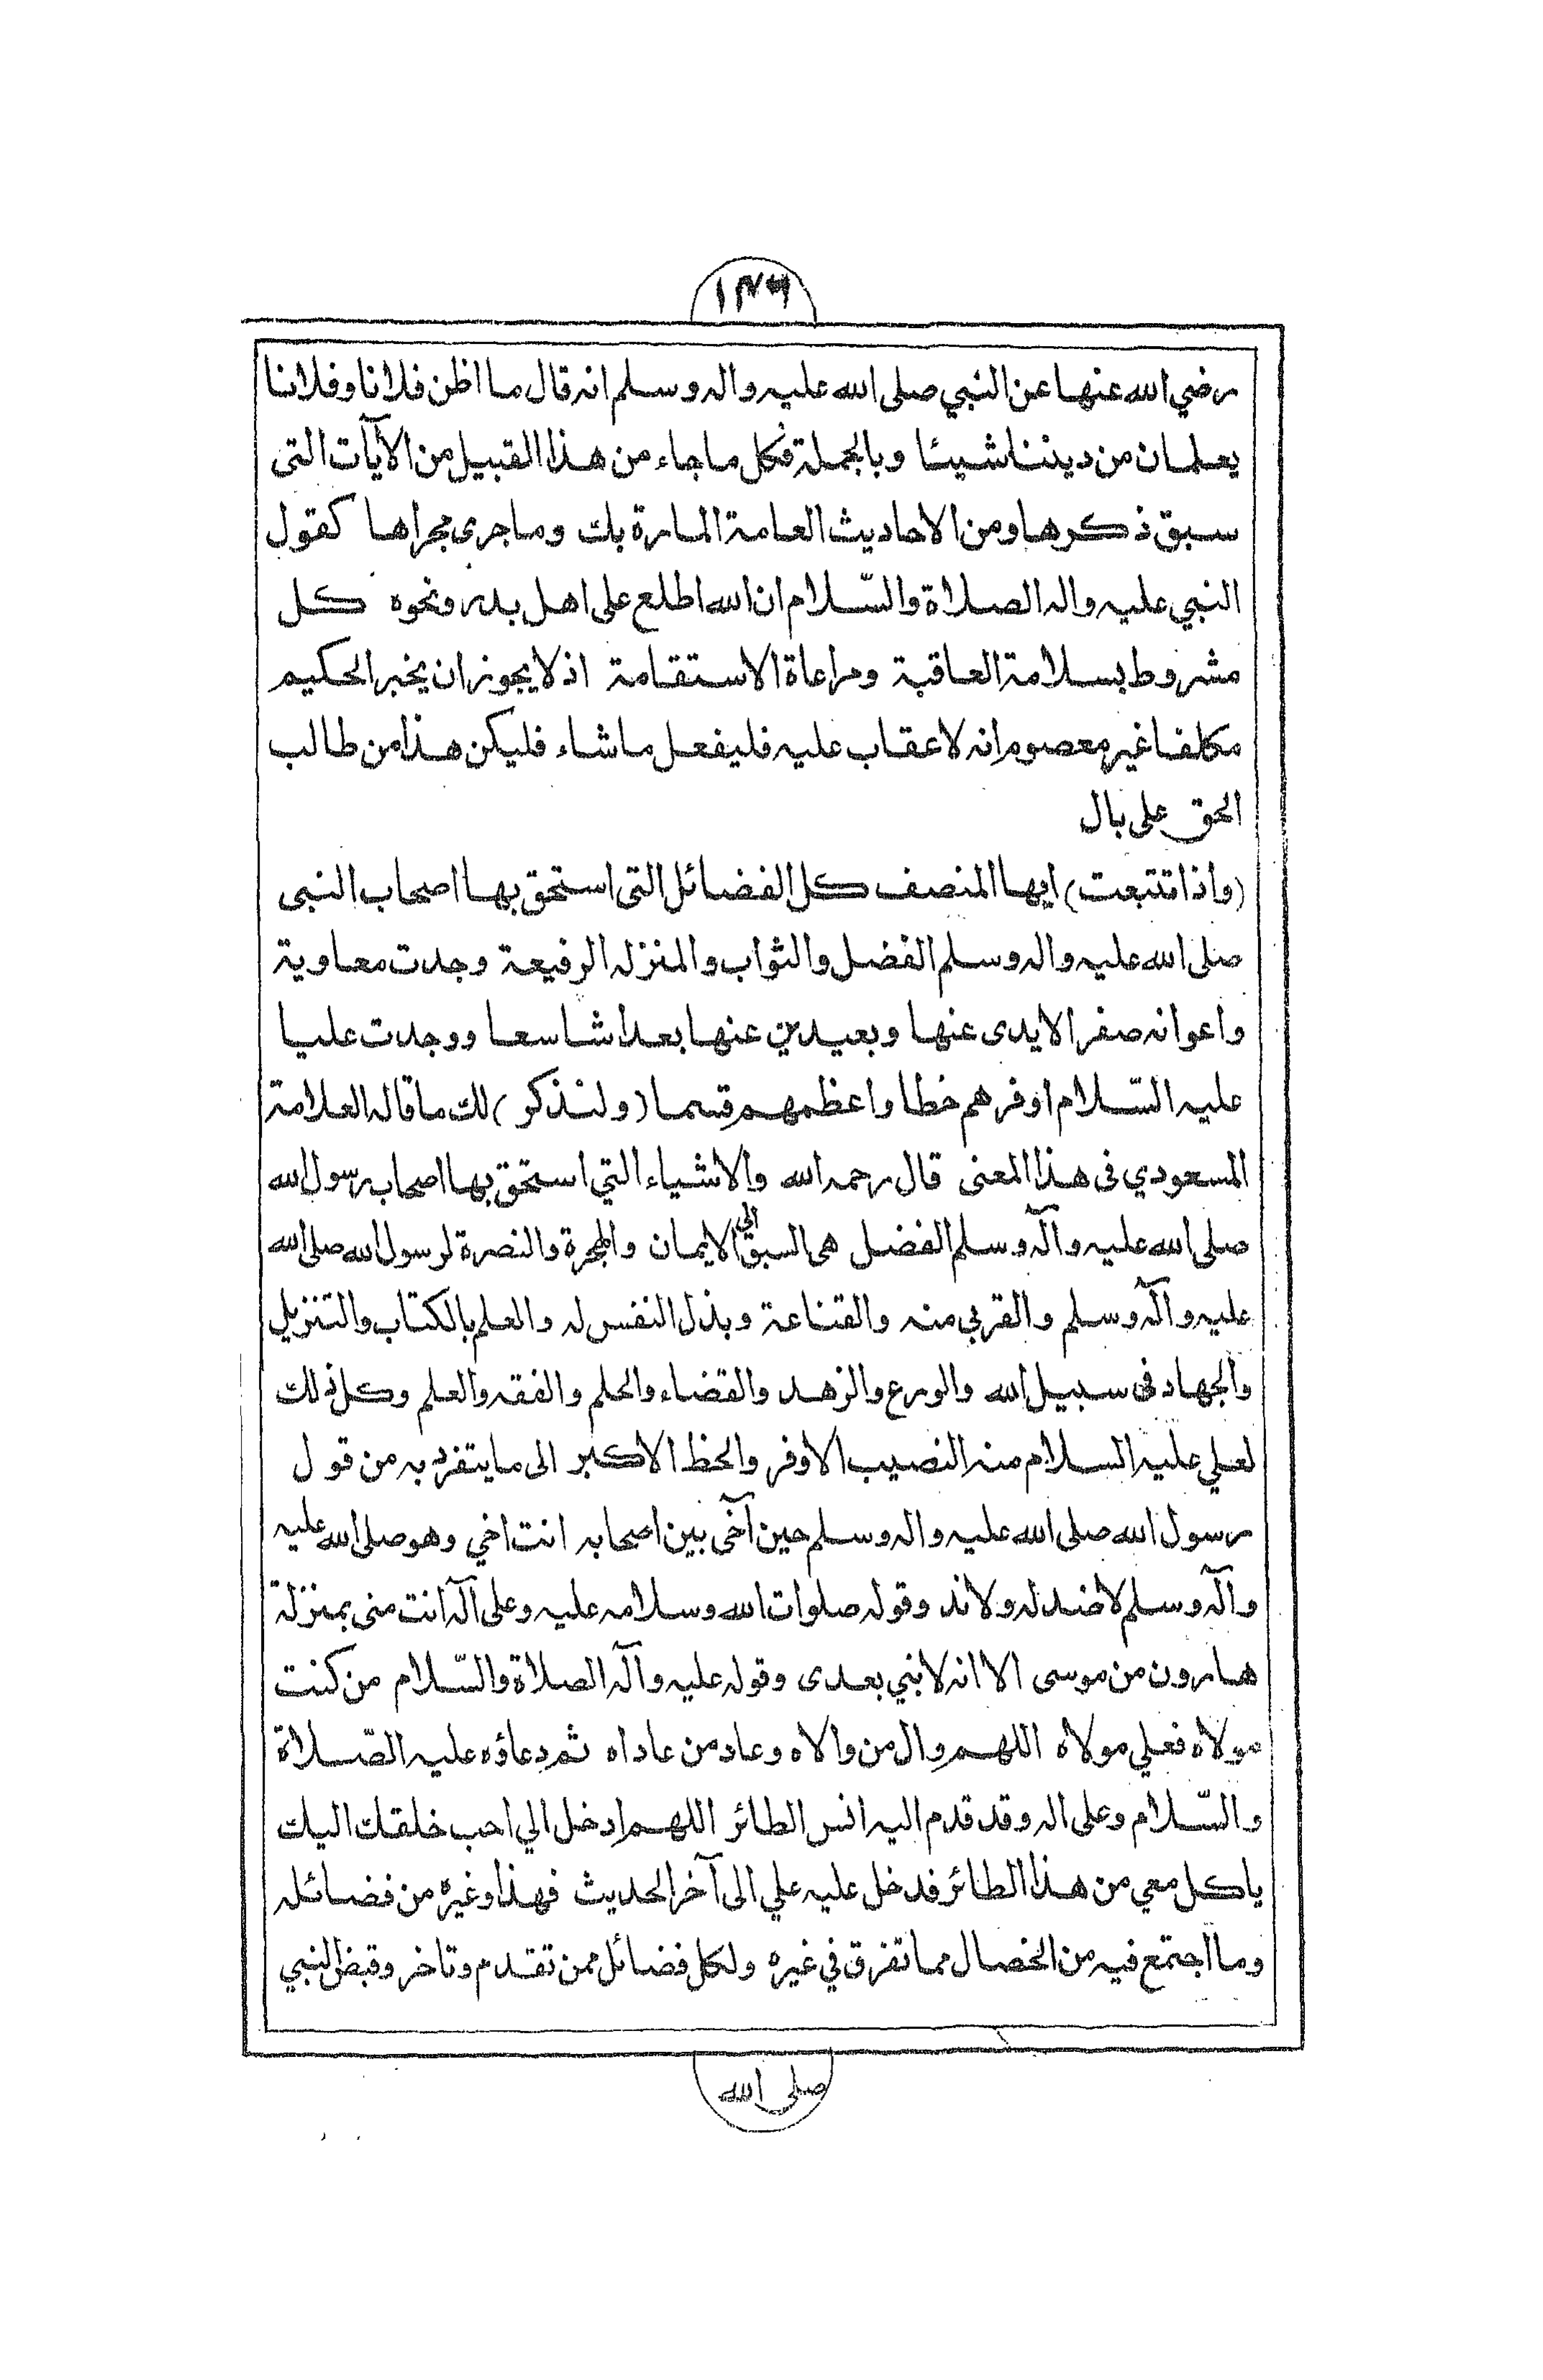 ١٣٦
رضي الله عنها عن النبي صلى الله عليه واله وسلم انه قال ما اظن فلانا وفلانا
يعلمان من ديننا شيئا وبالجملة فكل ما جاء من هذا القبيل من الآيات التى
سبق ذكرها ومن الاحاديث العامة المارة بك وما جرى مجراها كقول
النبي عليه واله الصلاة والسّلام ان الله اطلع على اهل بدر ونحوه كل
مشروط بسلامة العاقبة ومراعاة الاستقامة اذ لا يجوز ان يخبر الحكيم
مكلفا غير معصوم انه لا عقاب عليه فليفعل ما شاء فليكن هذا من طالب
الحق على بال
(واذا تتبعت) ايها المنصف كل الفضائل التى استحق بها اصحاب النبى
صلى الله عليه واله وسلم الفضل والثواب والمنزله الرفيعة وجدت معاوية
واعوانه صفر الايدى عنها وبعيدين عنها بعدا شاسعا ووجدت عليا
عليه السّلام اوفرهم خطا واعظمهم قسما (ولنذكر) لك ما قاله العلامة
المسعودي فى هذا المعنى قال رحمه الله والاشياء التي استحق بها اصحاب رسول الله
صلى الله عليه وآله وسلم الفضل هى السبق الى الايمان والهجرة والنصرة لرسول الله صلى الله
عليه وآله وسلم والقربى منه والقناعة وبذل النفس له والعلم بالكتاب والتنزيل
والجهاد فى سبيل الله والورع والزهد والقضاء والحلم والفقه والعلم وكل ذلك
لعلي عليه السلام منه النصيب الاوفر والحظ الاكبر الى ما يتفرد به من قول
رسول الله صلى الله عليه واله وسلم حين آخى بين اصحابه انت اخي وهو صلى الله عليه
وآله وسلم لا ضد له ولا ند وقوله صلوات الله وسلامه عليه وعلى آله انت منى بمنزلة
هارون من موسى الا انه لا نبي بعدى وقوله عليه وآله الصلاة والسّلام من كنت
مولاه فعلي مولاه اللهم وال من والاه وعاد من عاداه ثم دعاؤه عليه الصّلاة
والسّلام وعلى اله وقد قدم اليه انس الطائر اللهم ادخل الي احب خلقك اليك
ياكل معي من هذا الطائر فدخل عليه علي الى آخر الحديث فهذا وغيره من فضائله
وما اجتمع فيه من الخصال مما تفرق في غيره ولكل فضائل ممن تقدم وتاخر وقبض النبي
صلى الله